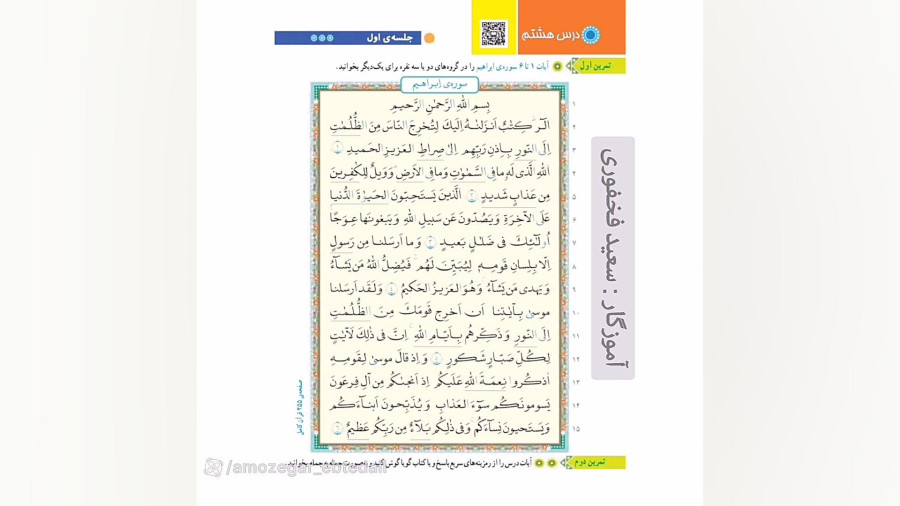 درس هشتم
جلسه‌ی اول
تمرین اول
آیات ۱ تا ۶ سوره‌ی ابراهیم را در گروه‌های دو یا سه نفره برای یک‌دیگر بخوانید.
سوره‌ی اِبراهیم
۱ بِسمِ اللّٰهِ الرَّحمٰنِ الرَّحیمِ
۲ الٓرٰ كِتٰبٌ اَنزَلنٰهُ اِلَيكَ لِتُخرِجَ النّاسَ مِنَ الظُّلُمٰتِ
۳ اِلَى النّورِ بِاِذنِ رَبِّهِم اِلىٰ صِراطِ العَزيزِ الحَميدِ ۱
۴ اَللّٰهِ الَّذى لَهٗ ما فِى السَّمٰوٰتِ وَ ما فِى الاَرضِ وَ وَيلٌ لِلكٰفِرينَ
۵ مِن عَذابٍ شَديدٍ ۲ اَلَّذينَ يَستَحِبّونَ الحَيٰوةَ الدُّنيا
۶ عَلَى الآخِرَةِ وَ يَصُدّونَ عَن سَبيلِ اللّٰهِ وَ يَبغونَها عِوَجًا
۷ اُولٰٓئِكَ فى ضَلٰلٍ بَعيدٍ ۳ وَ ما اَرسَلنا مِن رَسولٍ
۸ اِلّا بِلِسانِ قَومِهٖ لِيُبَيِّنَ لَهُم فَيُضِلُّ اللّٰهُ مَن يَشآءُ
۹ وَ يَهدى مَن يَشآءُ وَ هُوَ العَزيزُ الحَكيمُ ۴ وَ لَقَد اَرسَلنا
۱۰ موسىٰ بِـٔايٰتِنا اَن اَخرِج قَومَكَ مِنَ الظُّلُمٰتِ
۱۱ اِلَى النّورِ وَ ذَكِّرهُم بِاَيّامِ اللّٰهِ اِنَّ فى ذٰلِكَ لَآيٰتٍ
۱۲ لِكُلِّ صَبّارٍ شَكورٍ ۵ وَ اِذ قالَ موسىٰ لِقَومِهِ
۱۳ اذكُروا نِعمَةَ اللّٰهِ عَلَيكُم اِذ اَنجٰىكُم مِن آلِ فِرعَونَ
۱۴ يَسومونَكُم سوٓءَ العَذابِ وَ يُذَبِّحونَ اَبنآءَكُم
۱۵ وَ يَستَحيونَ نِسآءَكُم وَ فى ذٰلِكُم بَلآءٌ مِن رَبِّكُم عَظيمٌ ۶
صفحه‌ی ۲۵۵ قرآن کامل
آموزگار : سعید فخفوری
تمرین دوم
آیات درس را از رمزینه‌های سریع پاسخ و یا کتاب گویا گوش کنید و به‌صورت جمله به جمله بخوانید.
/amozegar_ebtedaii